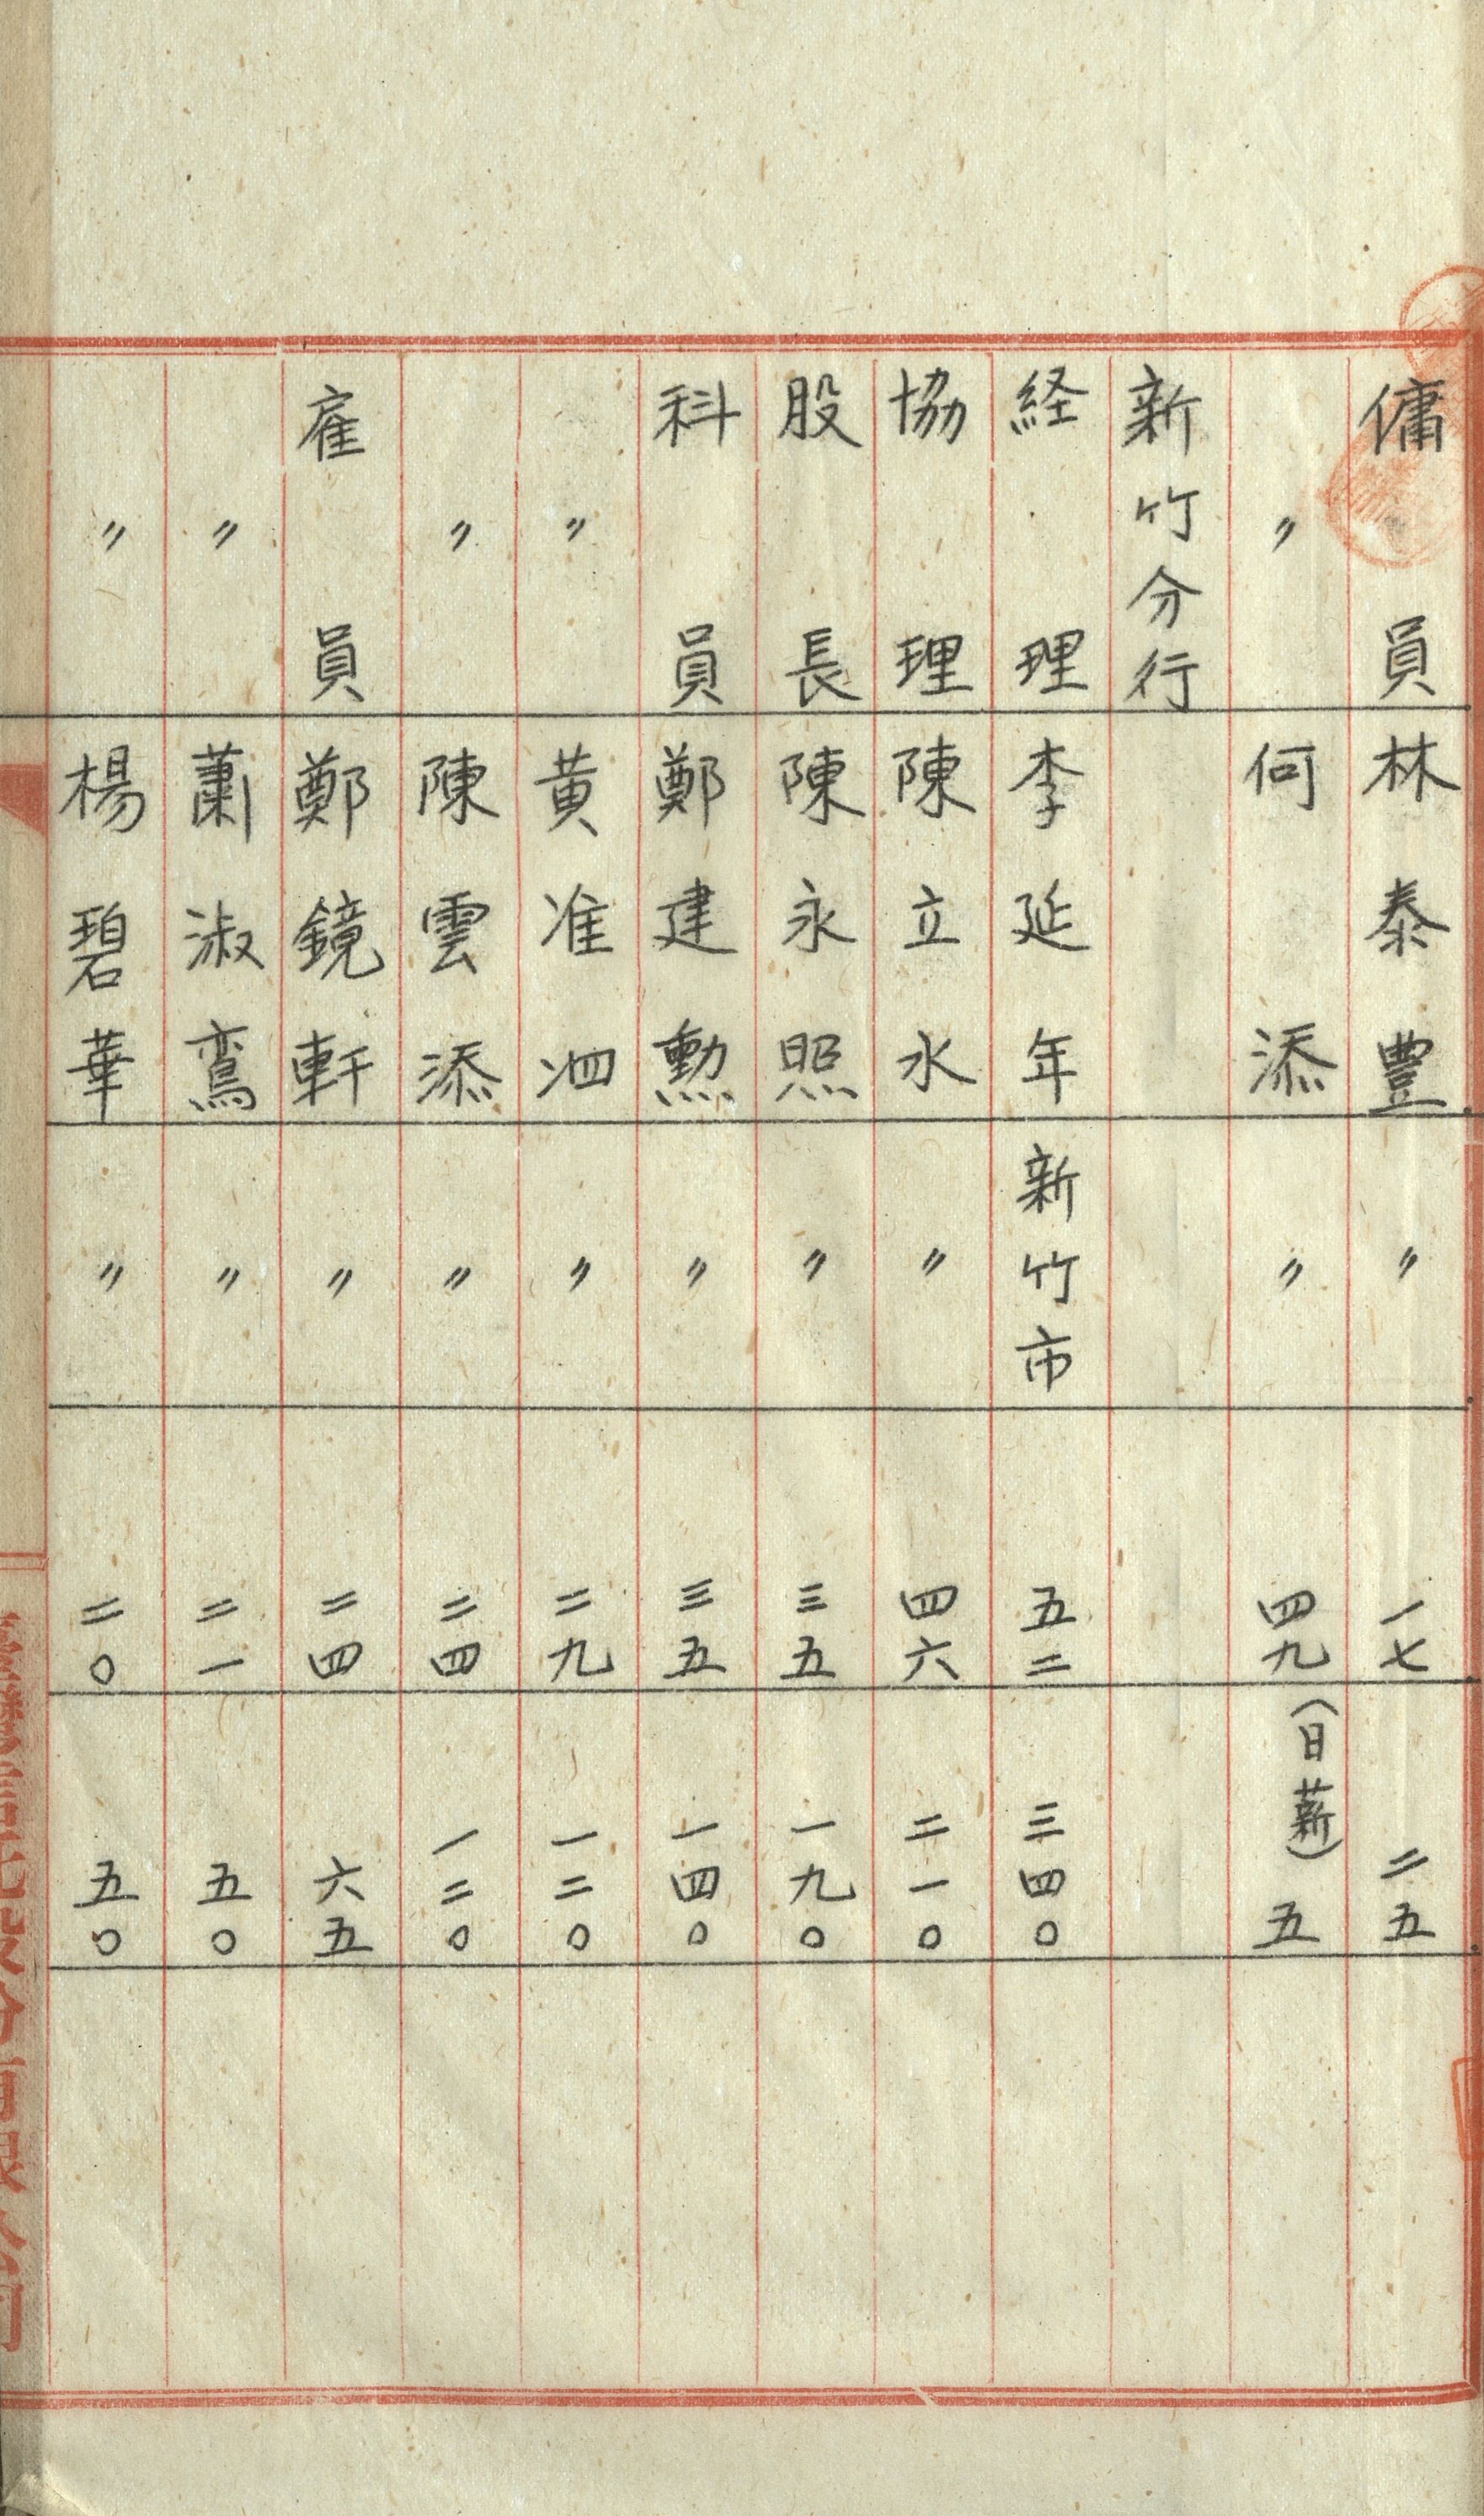 傭員 林泰豐 〃 一七 二五
〃 何添 〃 四九 (日薪) 五
新竹分行
経理 李延年 新竹市 五二 三四〇
協理 陳立水 〃 四六 二一〇
股長 陳永照 〃 三五 一九〇
科員 鄭建勲 〃 三五 一四〇
〃 黄准泗 〃 二九 一二〇
〃 陳雲添 〃 二四 一二〇
雇員 鄭鏡軒 〃 二四 六五
〃 蕭淑鸞 〃 二一 五〇
〃 楊碧華 〃 二〇 五〇